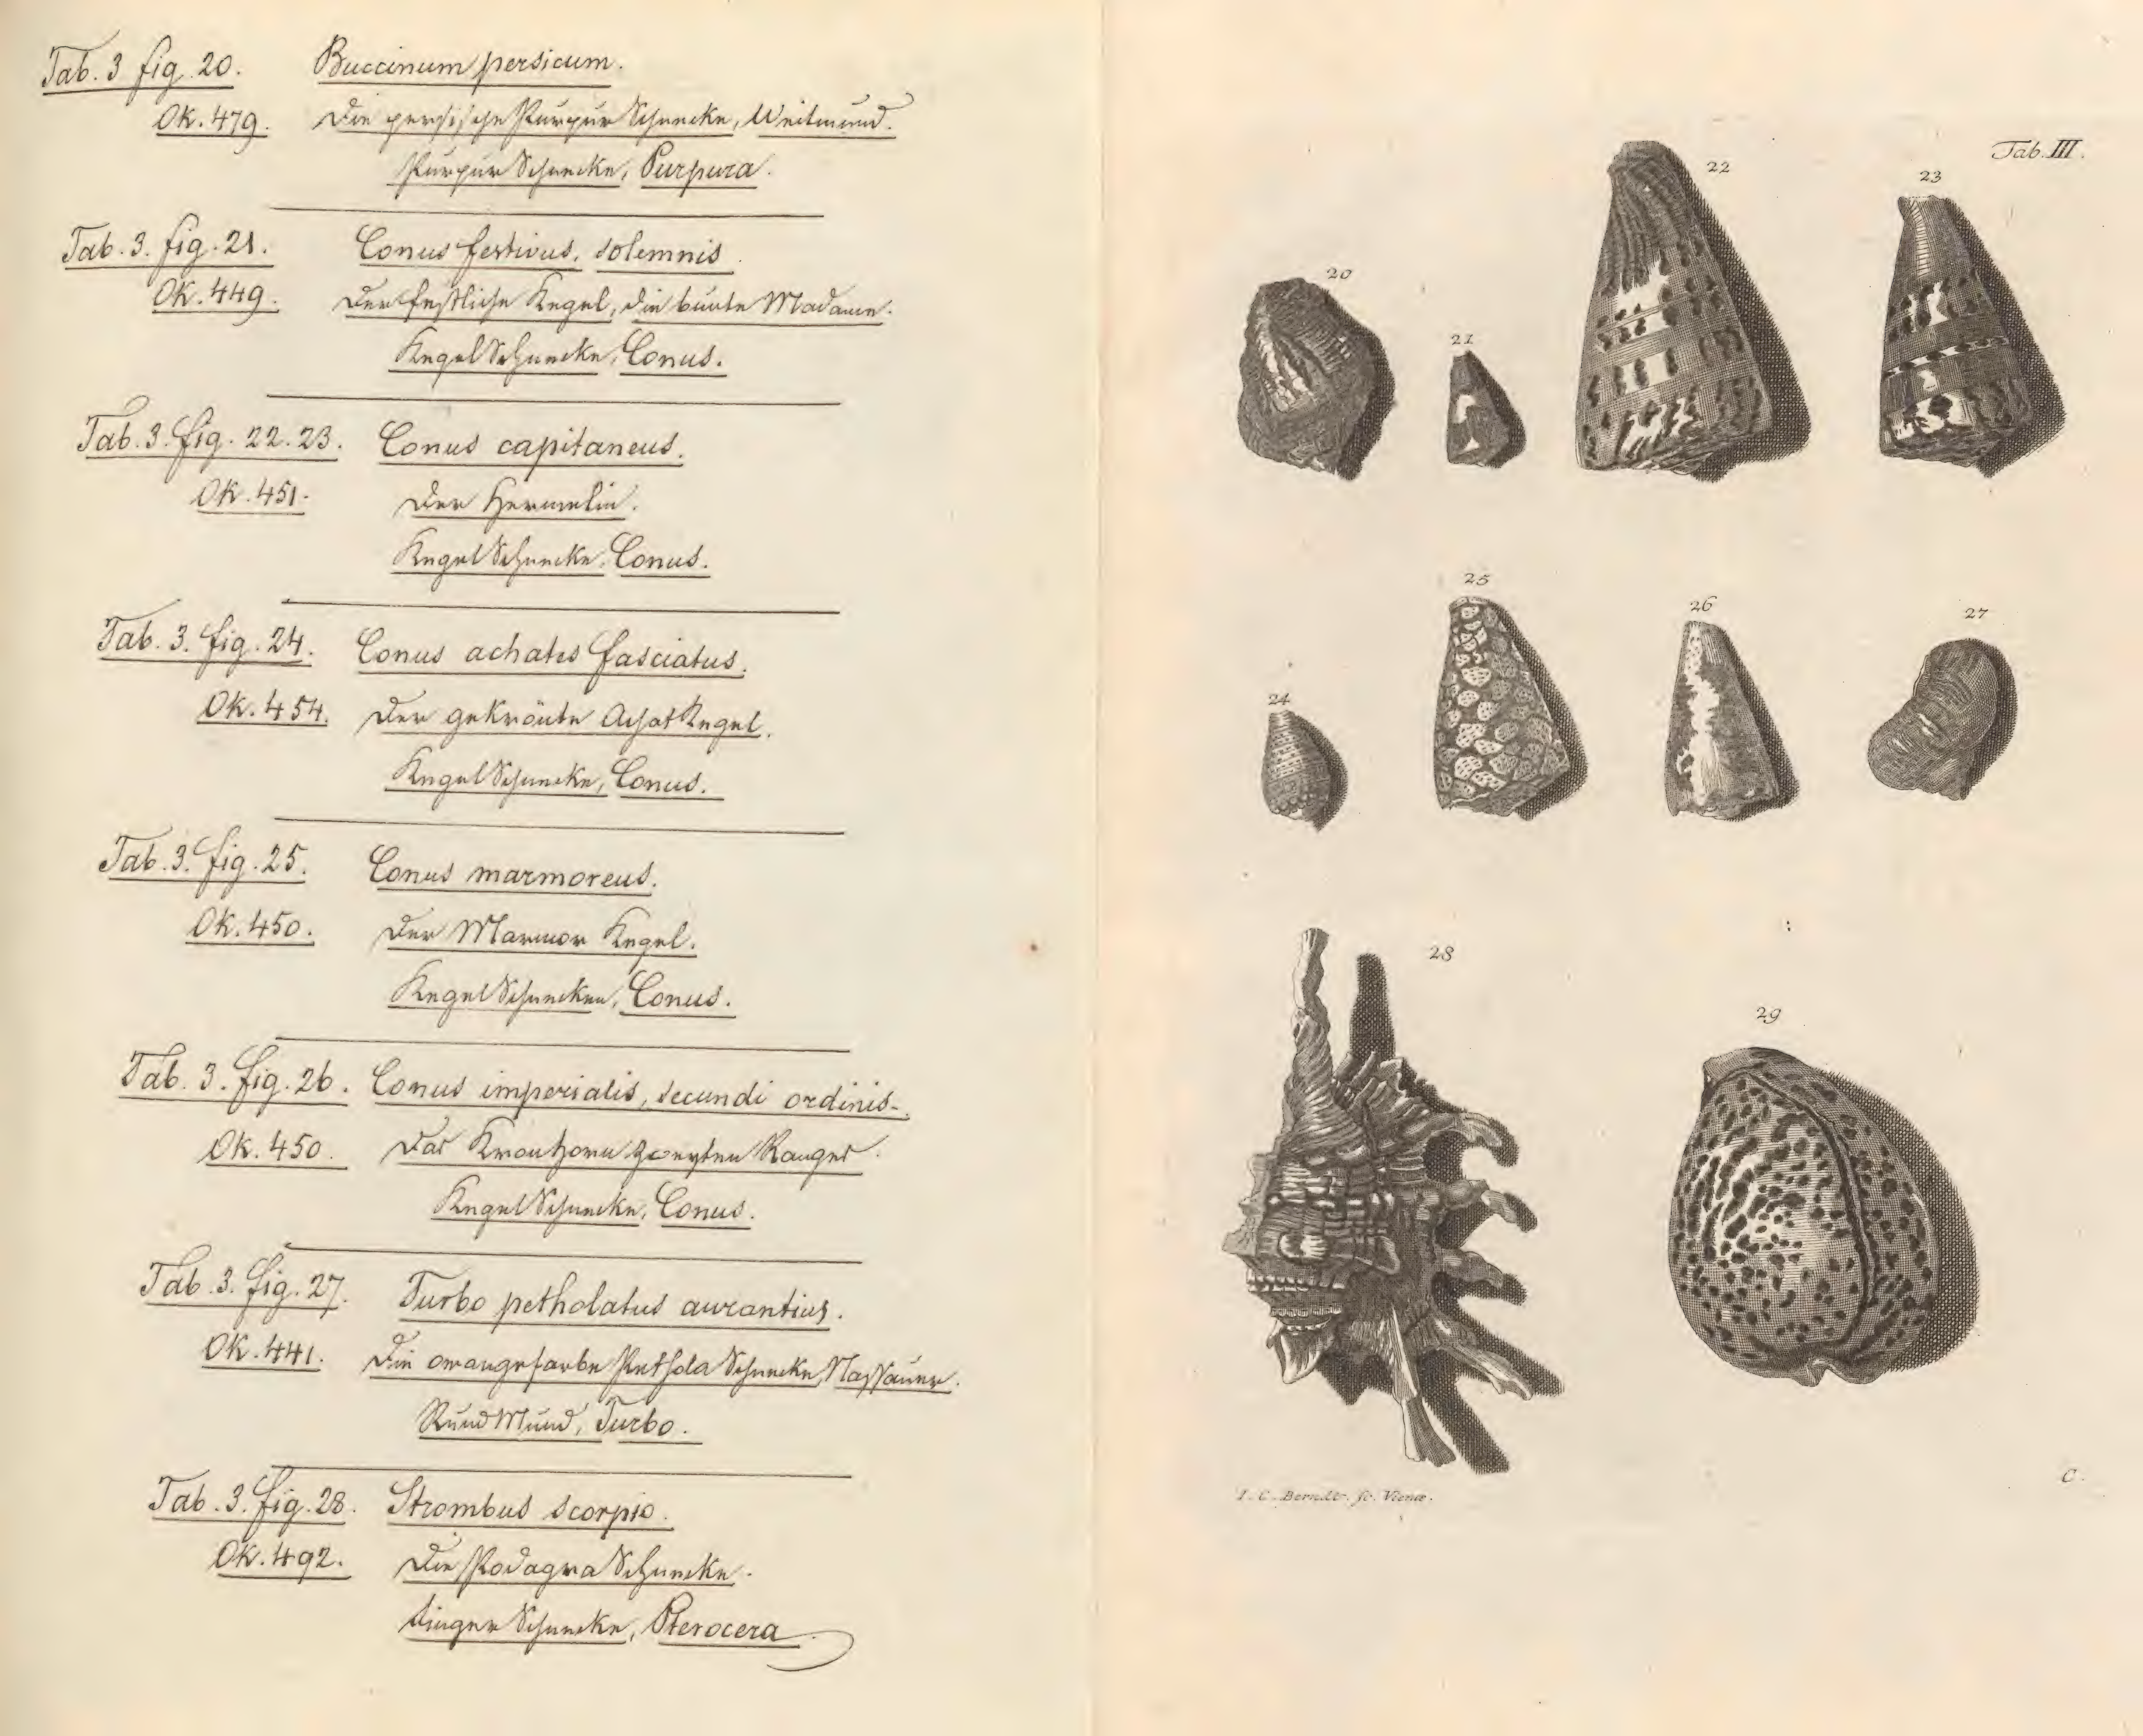 Tab. 3 fig. 20. Buccinum persicum.
Ok. 479. Die persische Purpur Schnecke, Weitmund.
Purpur Schnecke, Purpura.
Tab. 3. fig. 21. Conus festivus, solemnis.
Ok. 449. Der festliche Kegel, die bunte Madame.
Kegel Schnecke, Conus.
Tab. 3. fig. 22. 23. Conus capitaneus.
Ok. 451. Der Hermelin.
Kegel Schnecke, Conus.
Tab. 3. fig. 24. Conus achates fasciatus.
Ok. 454. Der gekrönte Achat Kegel.
Kegel Schnecke, Conus.
Tab. 3. fig. 25. Conus marmoreus.
Ok. 450. Der Marmor Kegel.
Kegel Schnecken, Conus.
Tab. 3. fig. 26. Conus imperialis, secundi ordinis.
Ok. 450. Das Kronhorn zweyten Ranges.
Kegel Schnecke, Conus.
Tab. 3. fig. 27. Turbo petholatus aurantius.
Ok. 441. Die orangefarbe Pethola Schnecke, Nassauer.
Rund Mund, Turbo.
Tab. 3. fig. 28. Strombus scorpio.
Ok. 492. Die Podagra Schnecke.
Finger Schnecke, Pterocera.
Tab. III.
20
21
22
23
24
25
26
27
28
29
I. C. Berndt. sc. Vienæ.
C.